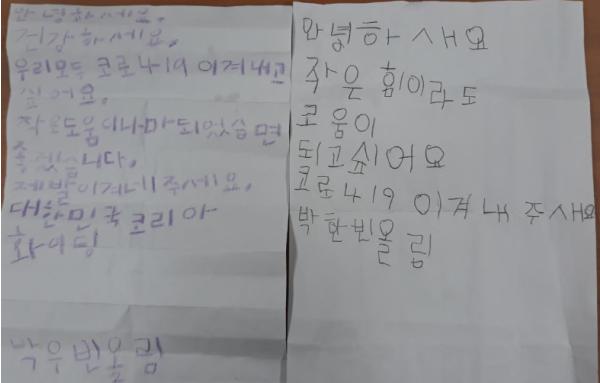 안녕하세요.
건강하세요.
우리모두 코로나19 이겨내고
싶어요.
작은도움이나마 되었습면
좋겠습니다.
제발이겨내주세요.
대한민국 코리아
화이팅
박우빈올림
안녕하새요
작은 힘이라도
도움이
되고싶어요
코로나19 이겨내주새요
박한빈올림